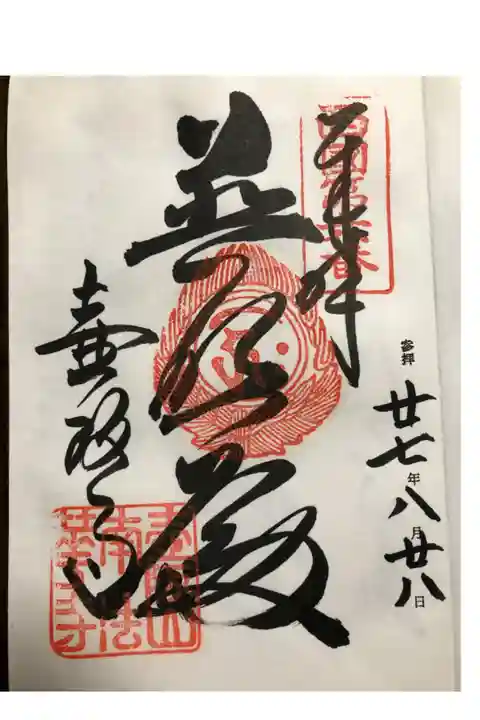 參拝
廿七年八月廿八日
奉拝
西國第六番
普照殿
壷阪寺
壷阪山
南法
華寺